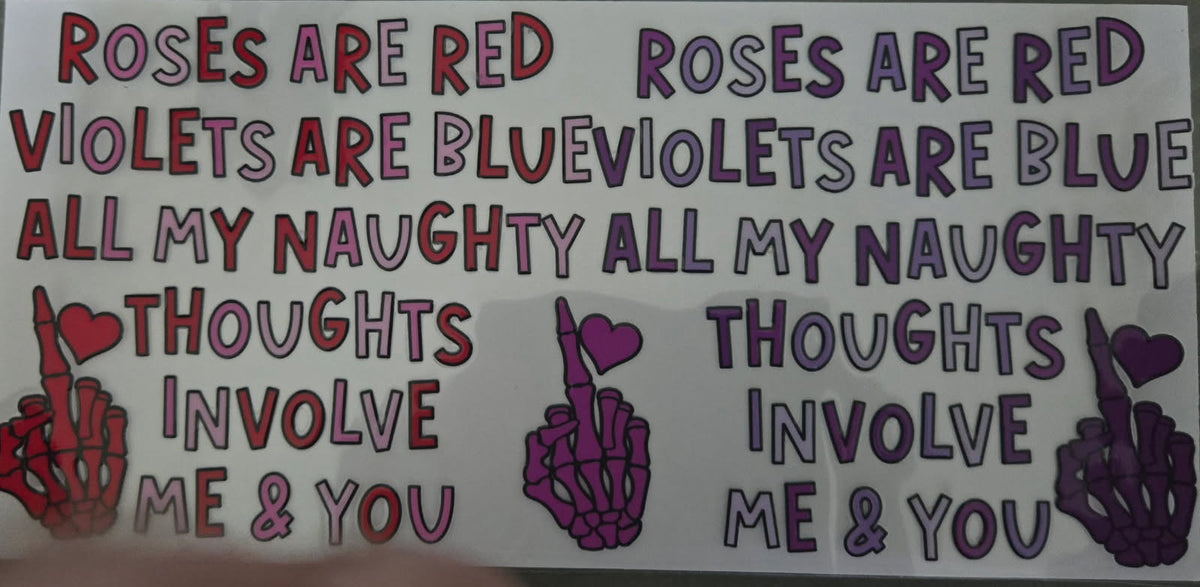 ROSES ARE RED
VIOLETS ARE BLUE
ALL MY NAUGHTY
THOUGHTS
INVOLVE
ME & YOU
ROSES ARE RED
VIOLETS ARE BLUE
ALL MY NAUGHTY
THOUGHTS
INVOLVE
ME & YOU